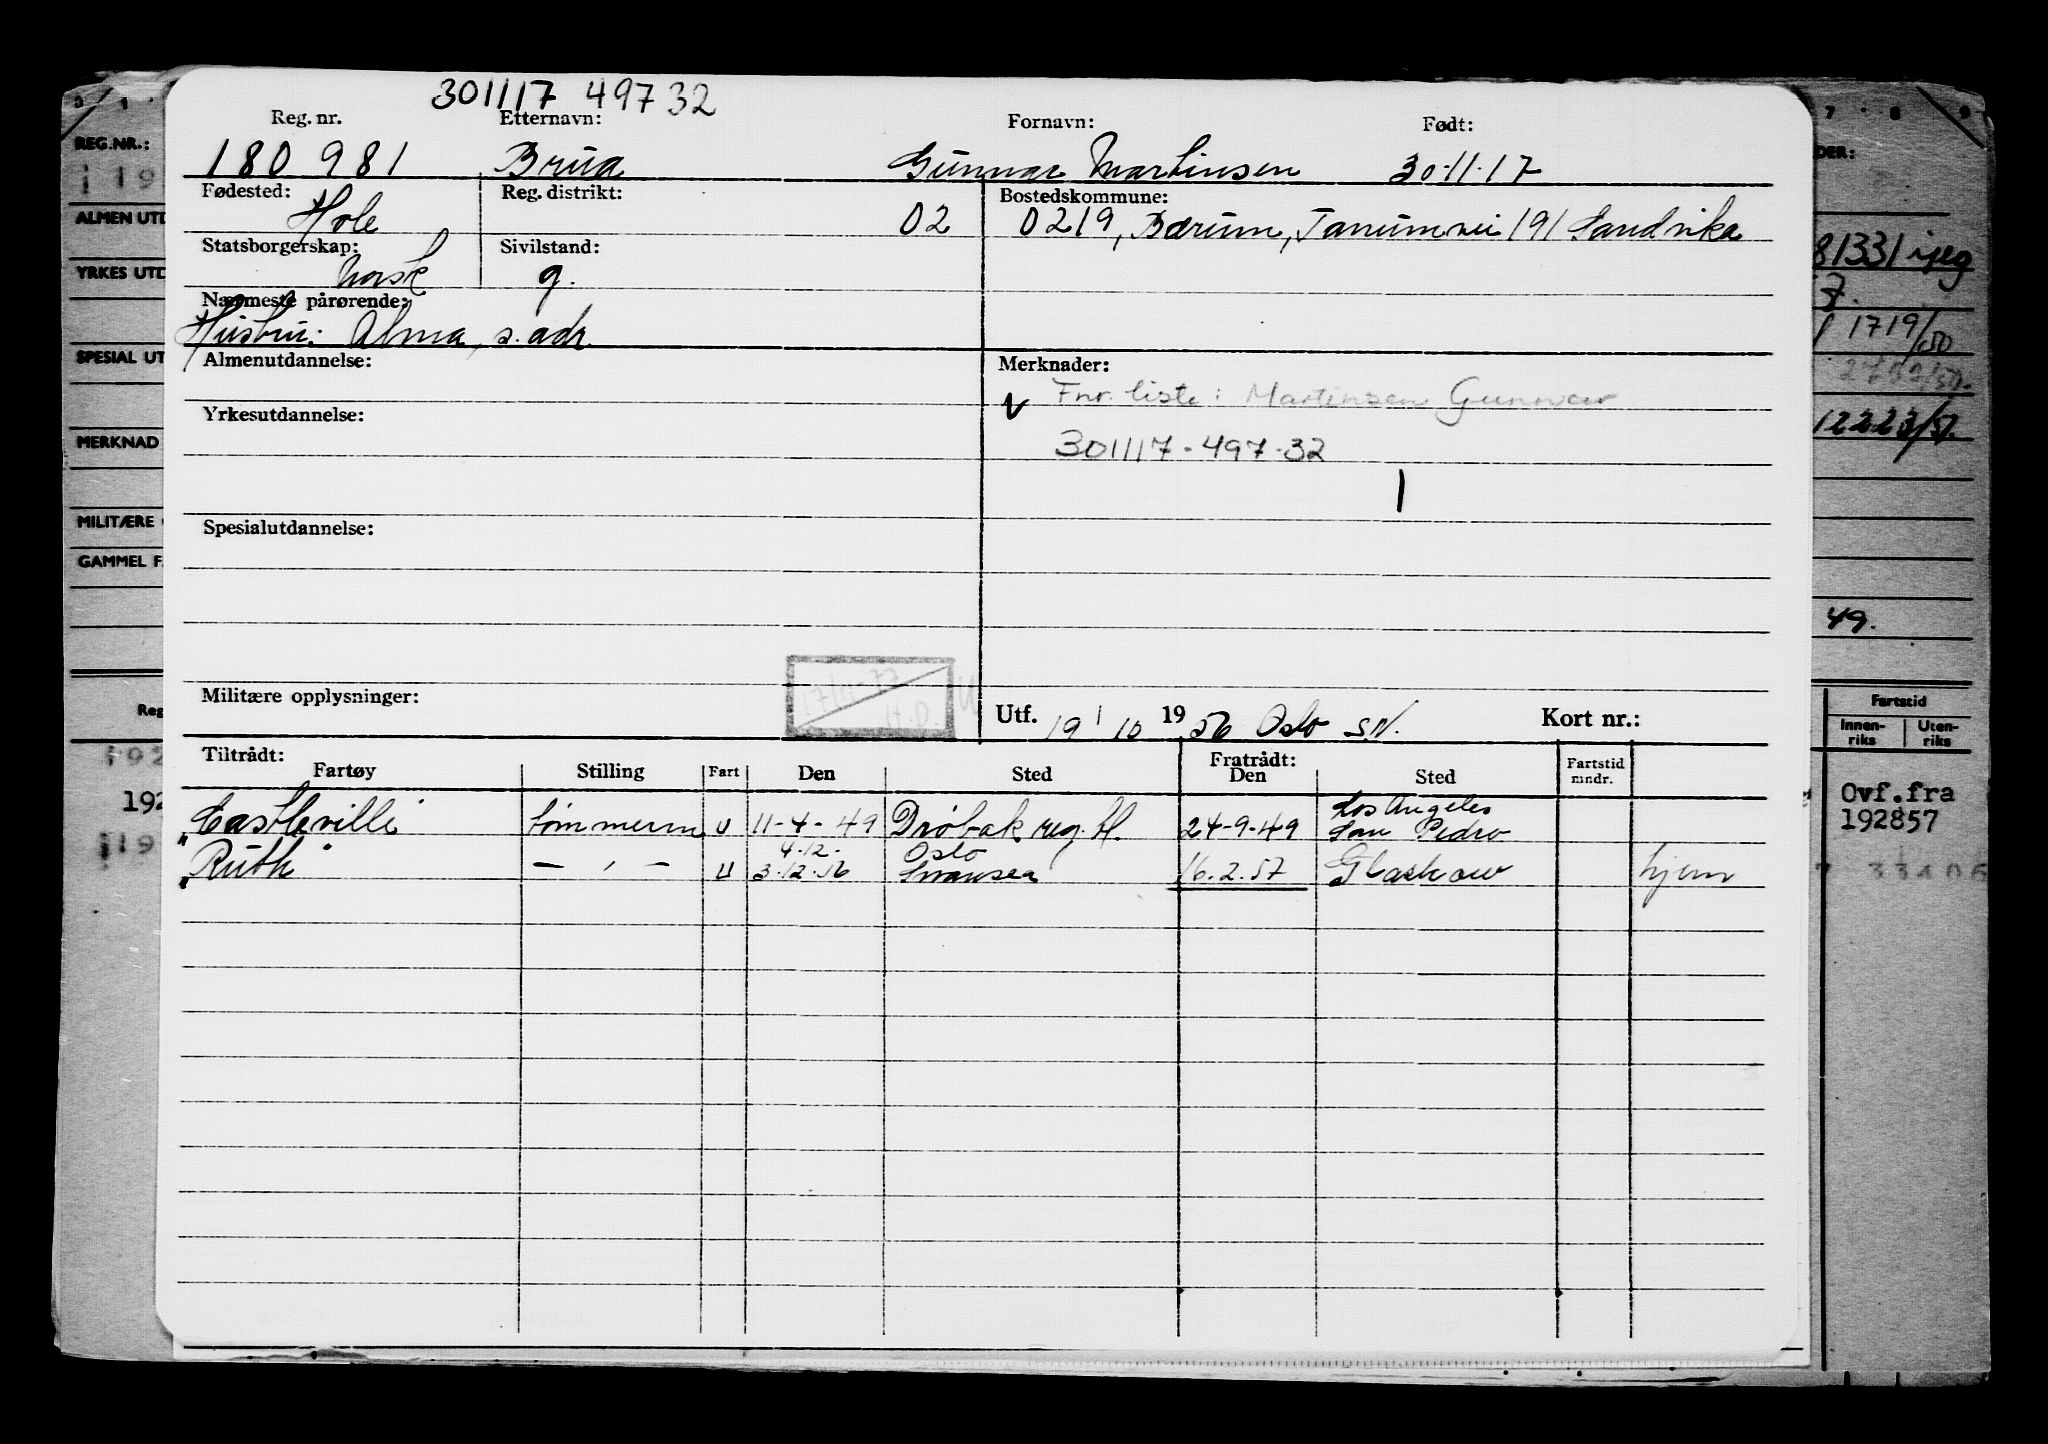 301117 49732
Reg. nr. Etternavn: Fornavn: Født:
180 981 Brua Gunnar Martinsen 30.11.17
Fødested: Reg. distrikt: Bostedskommune:
Hole 02 0219, Bærum, Tanumvei 191 Sandvika
Statsborgerskap: Sivilstand:
norsk g.
Nærmeste pårørende:
Hustru: Alma, s. adr.
Almenutdannelse: Merknader:
V Fnr. liste: Martinsen Gunnar
Yrkesutdannelse:
301117-497-32
Spesialutdannelse:
Militære opplysninger: 17/4-77 H.D.
Utf. 19/10 1956 Oslo S.N. Kort nr.:
Tiltrådt: Fratrådt:
Fartøy Stilling Fart Den Sted Den Sted Fartstid mndr.
"Castleville" tømmerm U 11-4-49 Drøbak reg. bl. 24-9-49 Los Angeles San Pedro
4.12. Oslo
"Ruth" — , — U 3.12.56 Swansea 16.2.57 Glaskow hjem
REG.NR.:
ALMEN UTD
YRKES UTD
SPESIAL UT
MERKNAD
MILITÆRE
GAMMEL F.
Reg
192
DER:
81331 ijeg
7.
1719/50
12223/57.
49.
Fartstid
Innen-riks Uten-riks
Ovf.fra
192857
33406